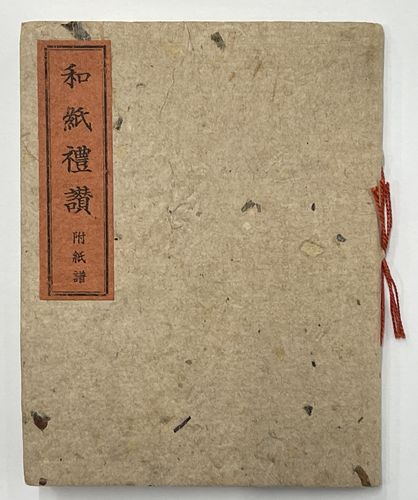 和紙禮讃
附紙譜